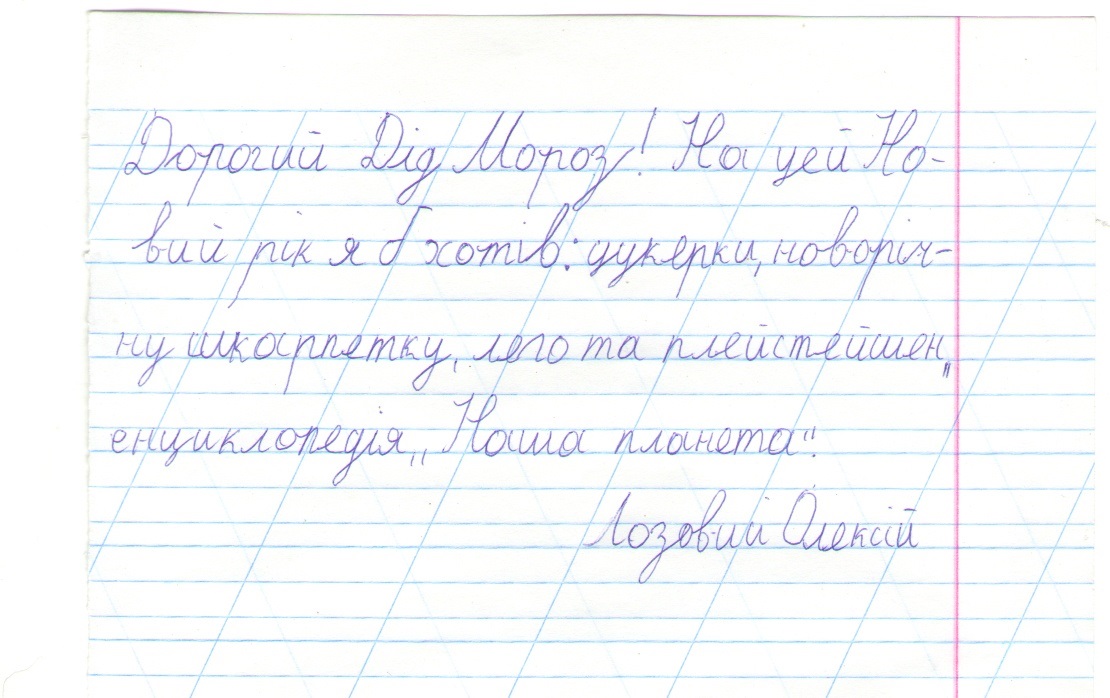 Дорогий Дід Мороз! На цей Но-
вий рік я б хотів: цукерки, новоріч-
ну шкарпетку, лего та плейстейшен,,
енциклопедія,, Наша планета".
Лозовий Олексій